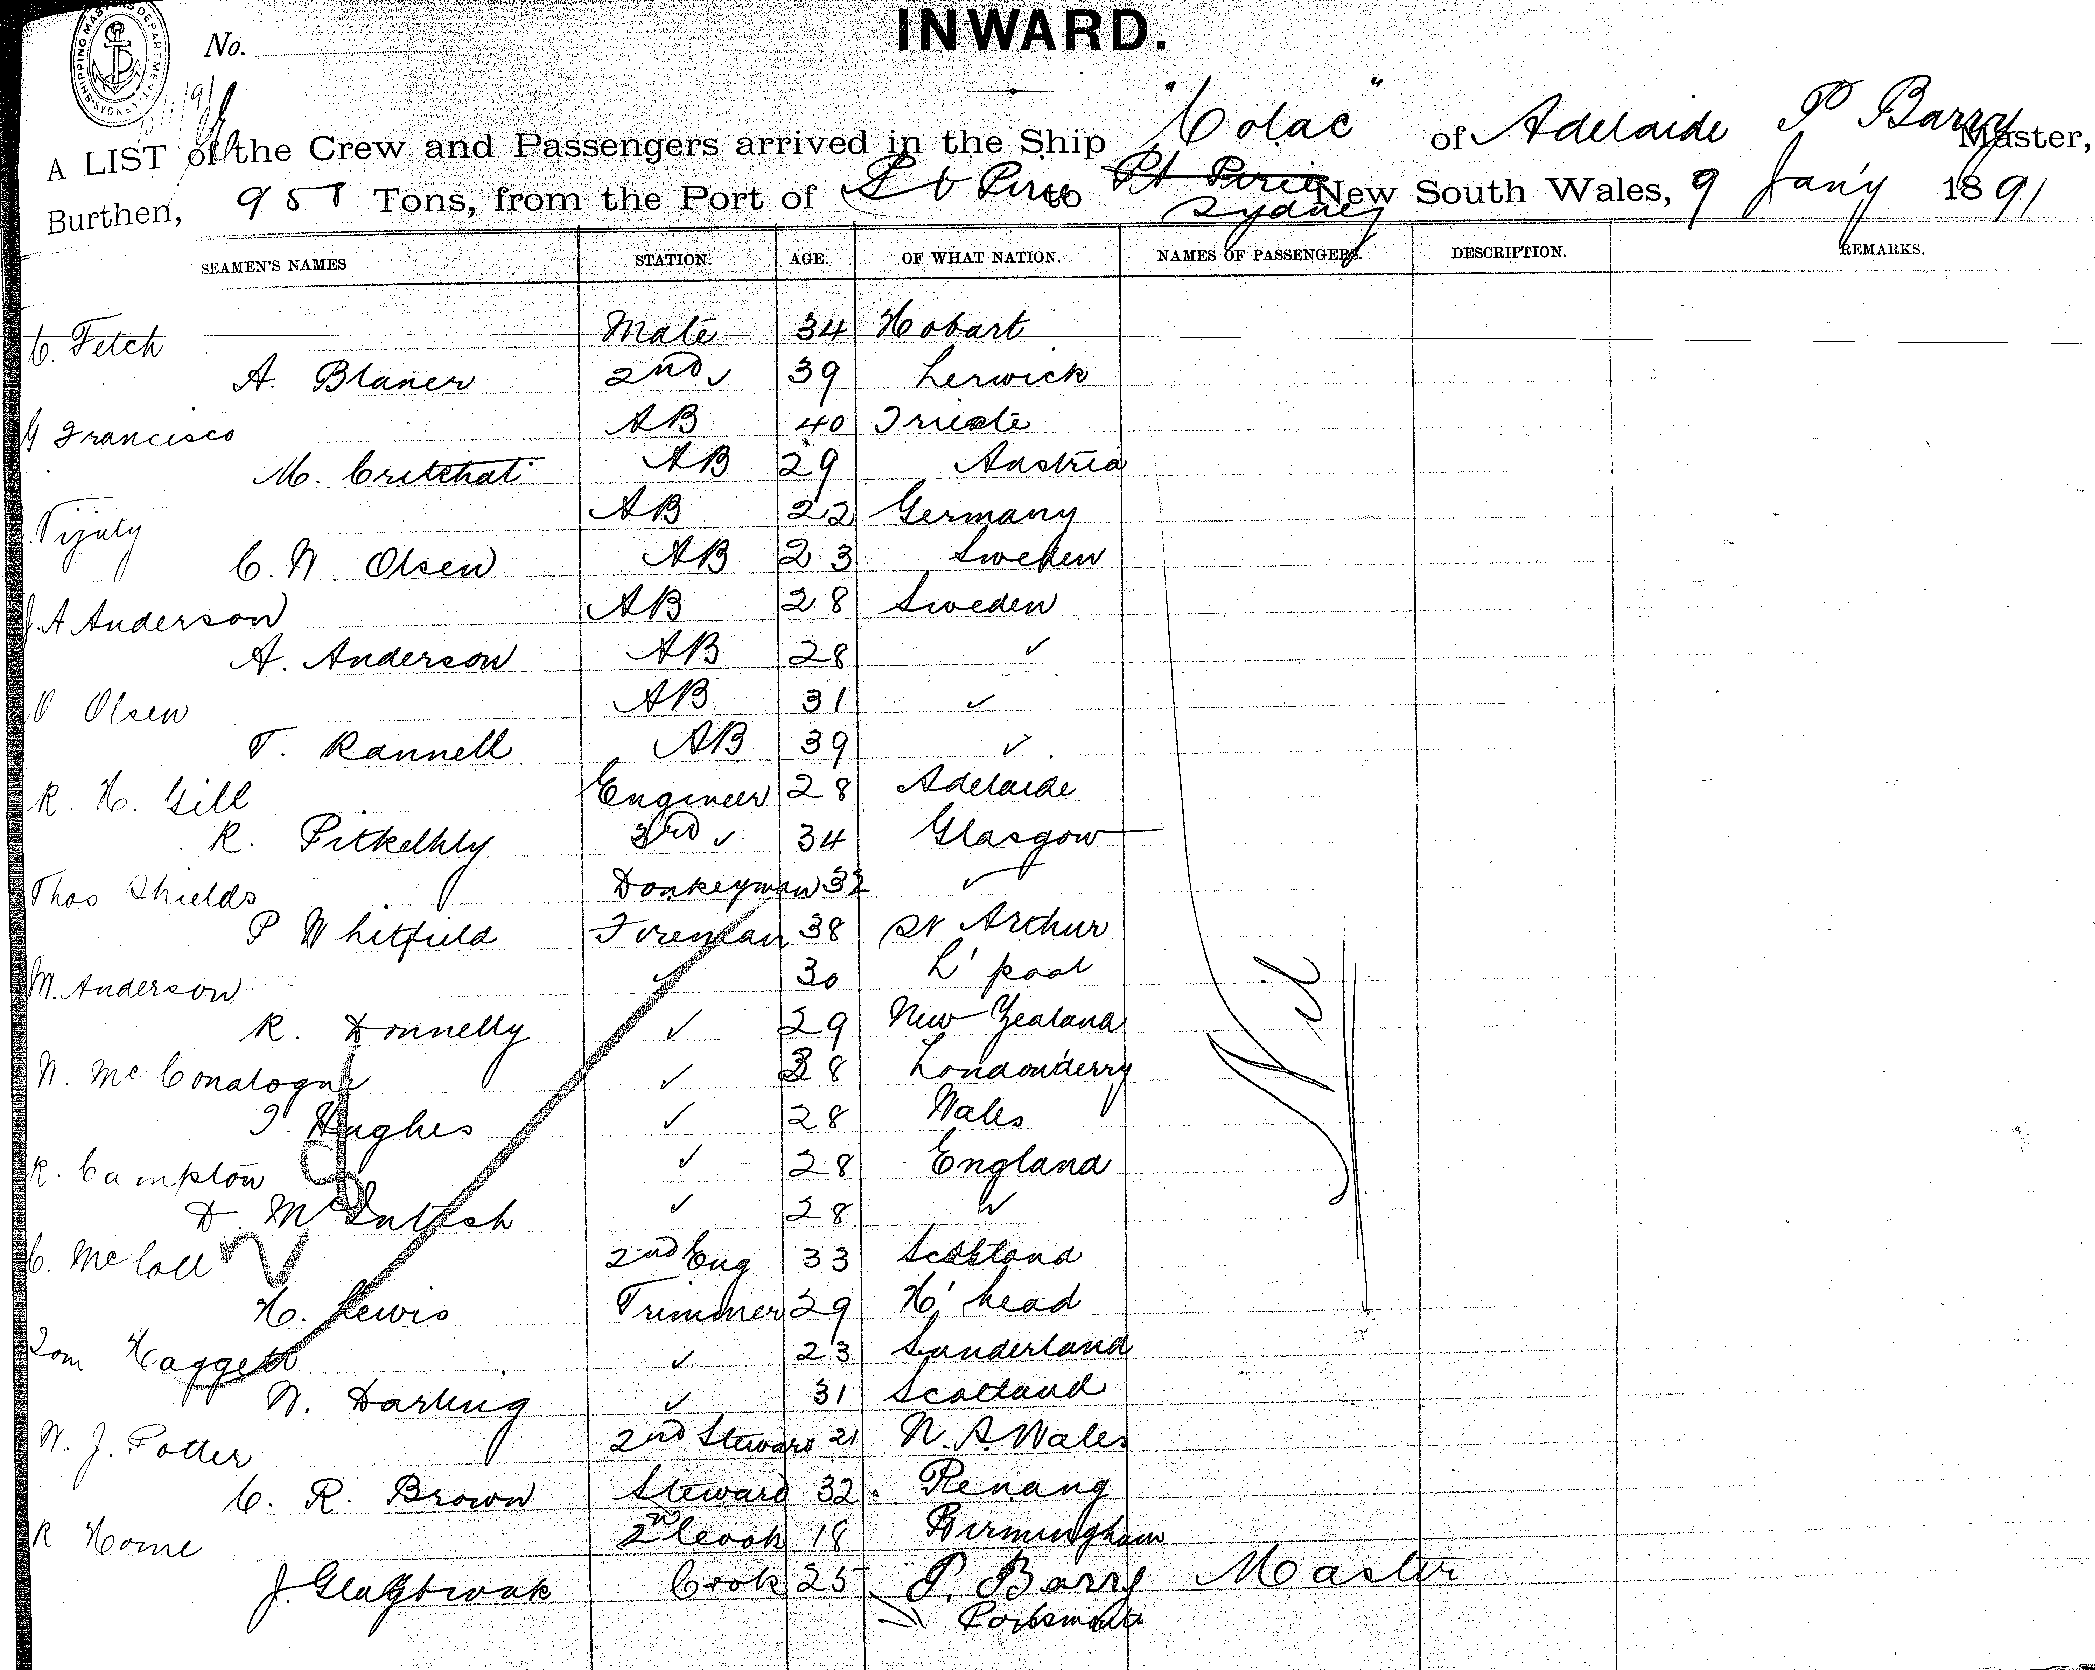 INWARD.
No.
A LIST of the Crew and Passengers arrived in the Ship "Colac" of Adelaide P Barry Master,
Burthen, 957 Tons, from the Port of Pt Pirie to Pt Pirie Sydney New South Wales, 9 Jany 1891
SEAMEN'S NAMES STATION. AGE. OF WHAT NATION. NAMES OF PASSENGERS. DESCRIPTION. REMARKS.
C. Fetch Mate 34 Hobart
A. Blaner 2nd ✓ 39 Lerwick
Francisco AB 40 Trieste
M. Critchat AB 29 Austria
AB 22 Germany
C. W. Olsen AB 23 Sweden
J. A Anderson AB 28 Sweden
A. Anderson AB 28 ✓
O Olsen AB 31 ✓
T. Rannell AB 39 ✓
R. H. Gill Engineer 28 Adelaide
R. 3rd ✓ 34 Glasgow
Thos Shields Donkeyman 32 ✓
P Whitfield Fireman 38 Pt Arthur
M. Anderson ✓ 30 L'pool
R. Donnelly ✓ 29 New Zealand
N. McConalogue ✓ 38 Londonderry
J. Hughes ✓ 28 Wales
R. Campton ✓ 28 England
D. McIntosh ✓ 28 ✓
C. McCall 2nd Eng 33 Scotland
H. Lewis Trimmer 29 H'head
Tom Haggett ✓ 23 Sunderland
W. Darling ✓ 31 Scotland
W. J. Potter 2nd Steward 21 N. S. Wales
C. R. Brown Steward 32 Penang
R Horne 2nd Cook 18 Birmingham
J. Cook 25 P. Barry Master
Portsmouth
Nil